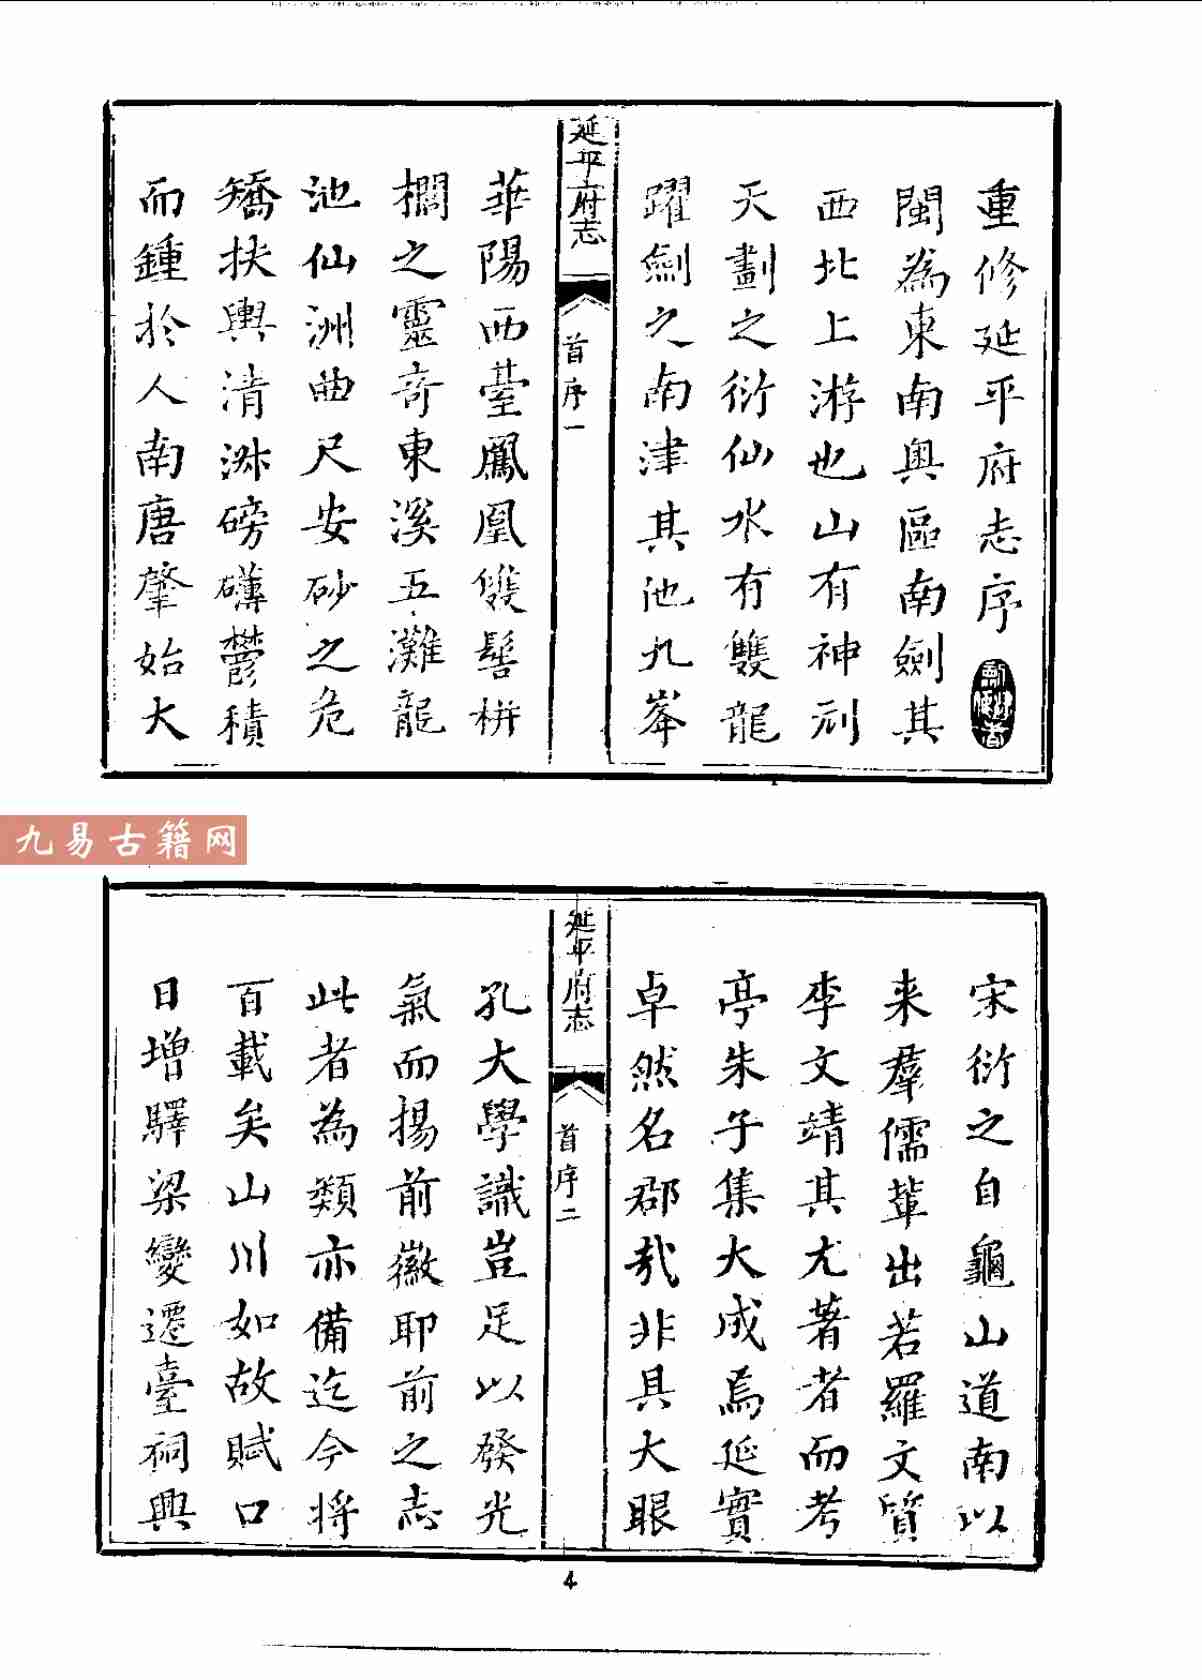 重修延平府志序
閩為東南奧區南劍其
西北上游也山有神刓
天劃之衍仙水有雙龍
躍劍之南津其池九峯
延平府志
首序一
華陽西臺鳳凰雙髻栟
櫚之靈奇東溪五灘龍
池仙洲曲尺安砂之危
矯扶輿清淑磅礴鬱積
而鍾於人南唐肇始大
九易古籍网
宋衍之自龜山道南以
来羣儒輩出若羅文質
李文靖其尤著者而考
亭朱子集大成焉延實
卓然名郡哉非具大眼
延平府志
首序二
孔大學識豈足以發光
氣而揚前徽耶前之志
此者為類亦備迄今將
百載矣山川如故賦口
日增驛梁變遷臺祠興
4